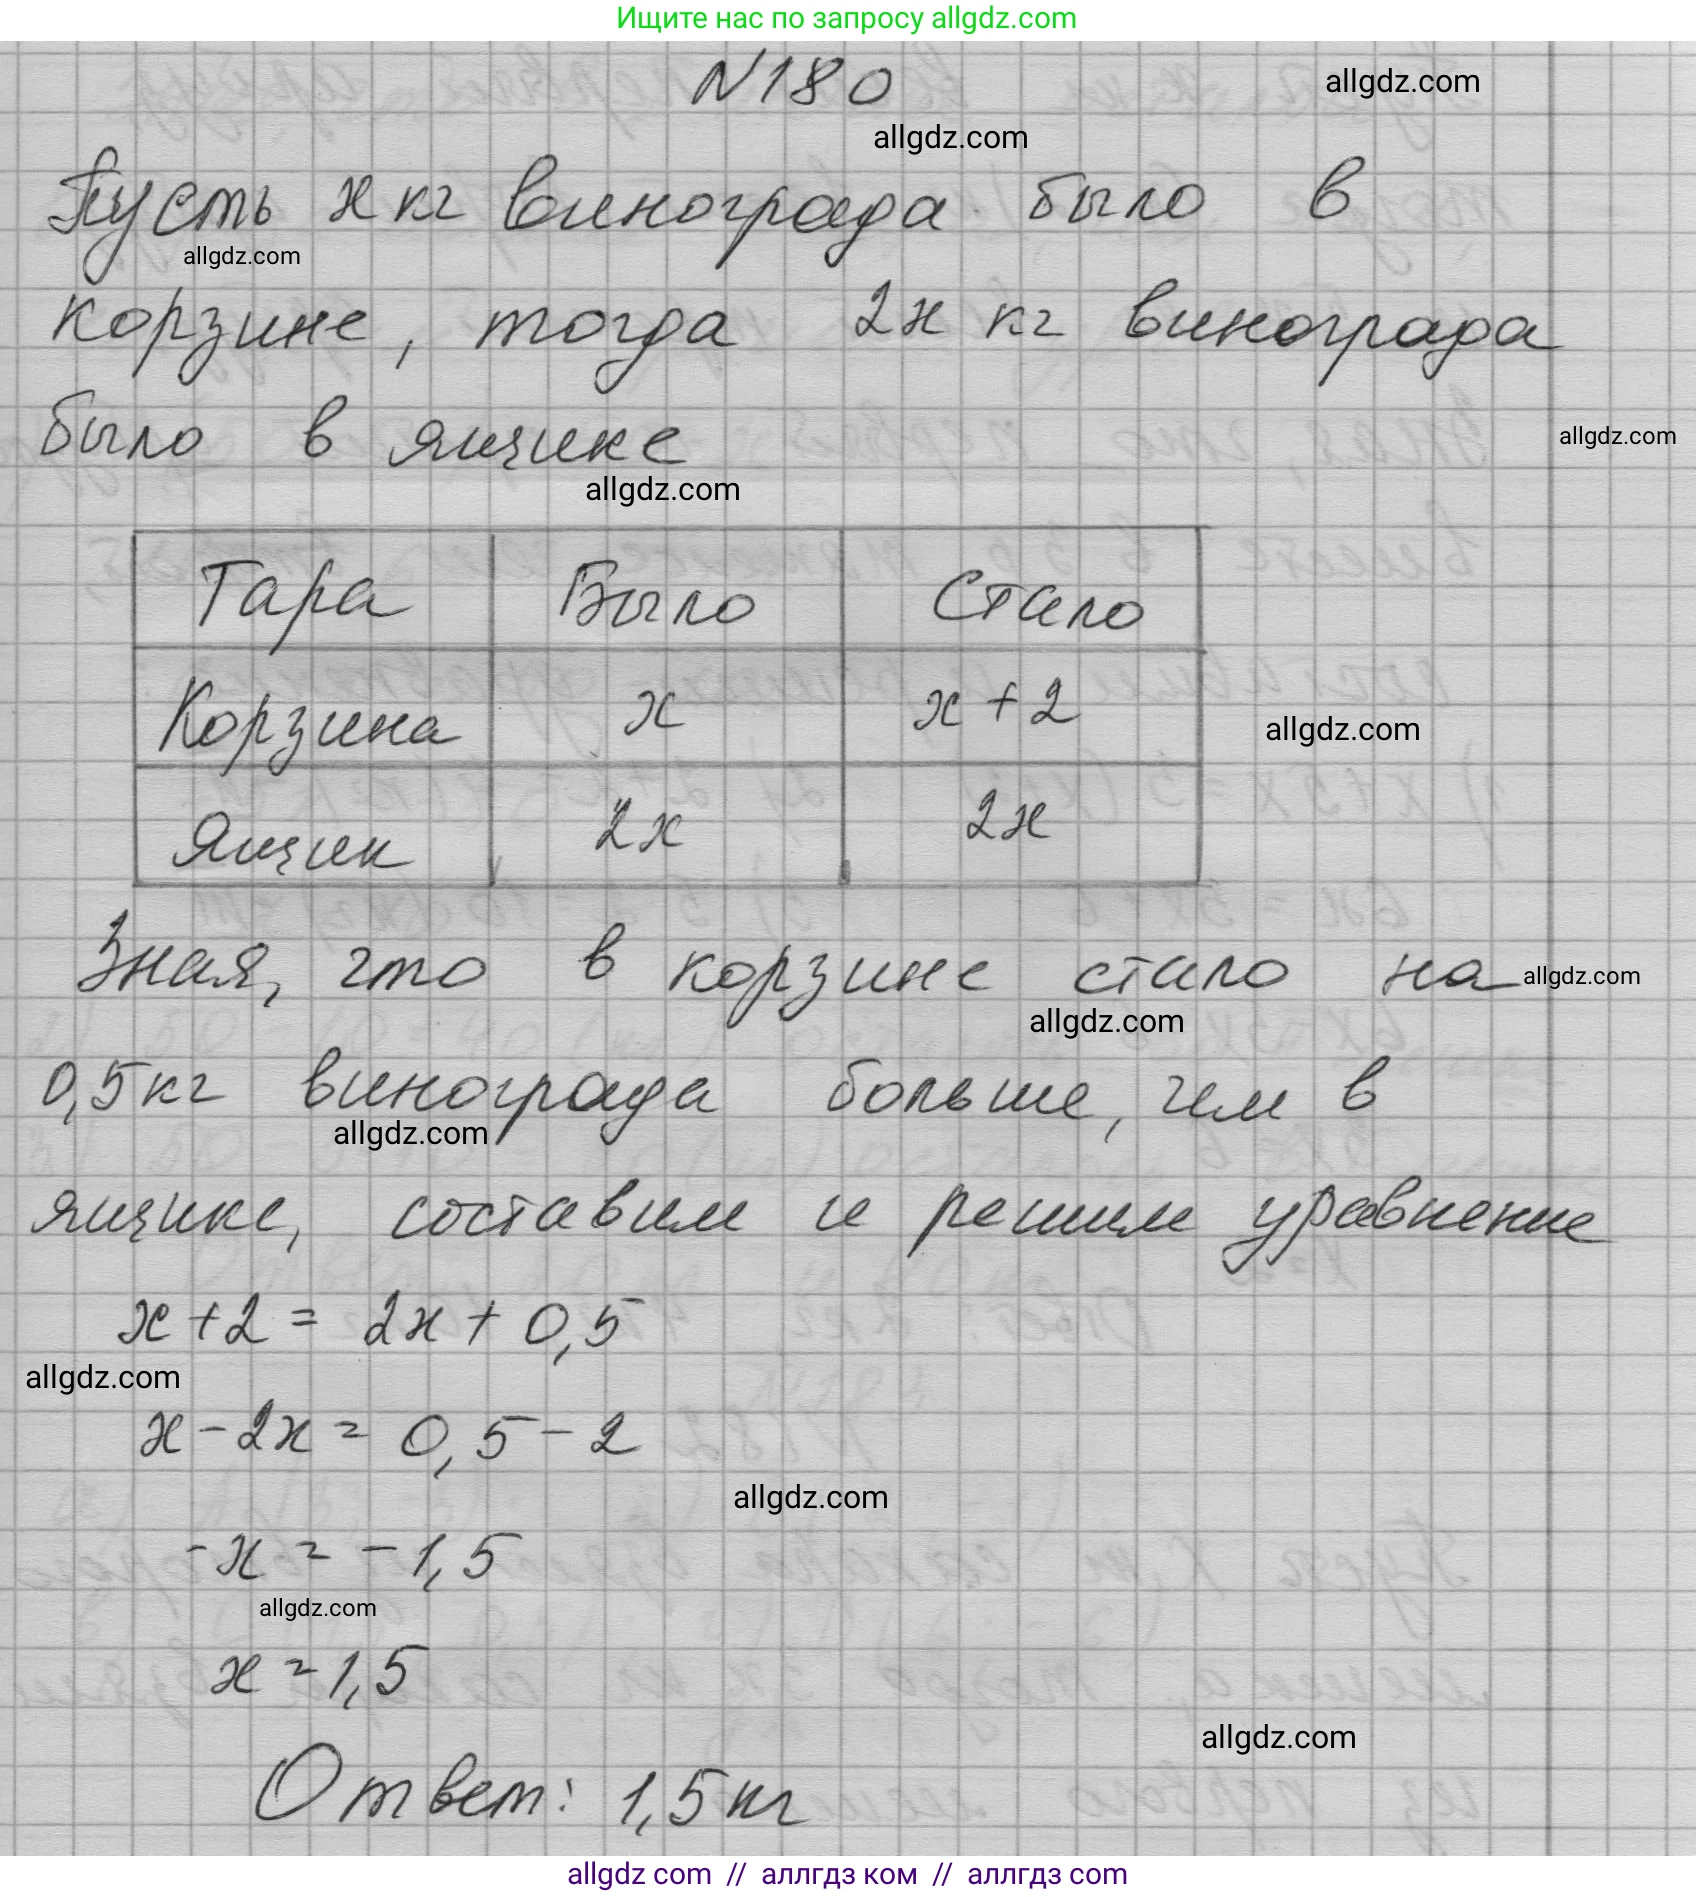 Ищите нас по запросу allgdz.com
N180
allgdz.com
allgdz.com
Пусть x кг винограда было в
allgdz.com
корзине, тогда 2x кг винограда
было в ящике
allgdz.com
allgdz.com
Тара Было Стало
Корзина x x+2
allgdz.com
Ящик 2x 2x
Зная, что в корзине стало на
allgdz.com
allgdz.com
0,5 кг винограда больше, чем в
allgdz.com
ящике, составим и решим уравнение
x+2 = 2x+0,5
allgdz.com
x-2x = 0,5-2
allgdz.com
-x = -1,5
allgdz.com
x = 1,5
allgdz.com
Ответ: 1,5 кг
allgdz com // аллгдз ком // аллгдз com